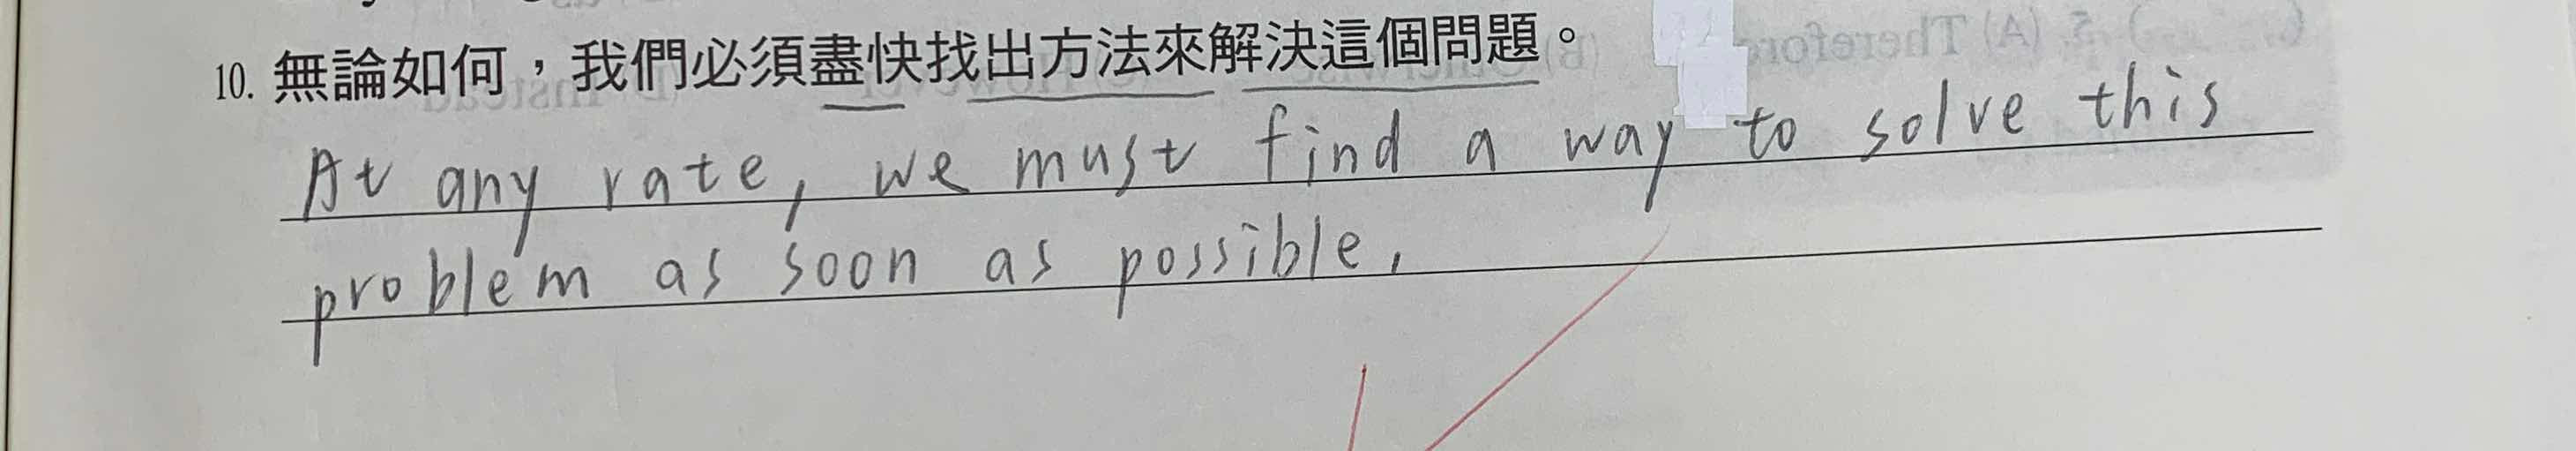 10. 無論如何，我們必須盡快找出方法來解決這個問題。
At any rate, we must find a way to solve this
problem as soon as possible.